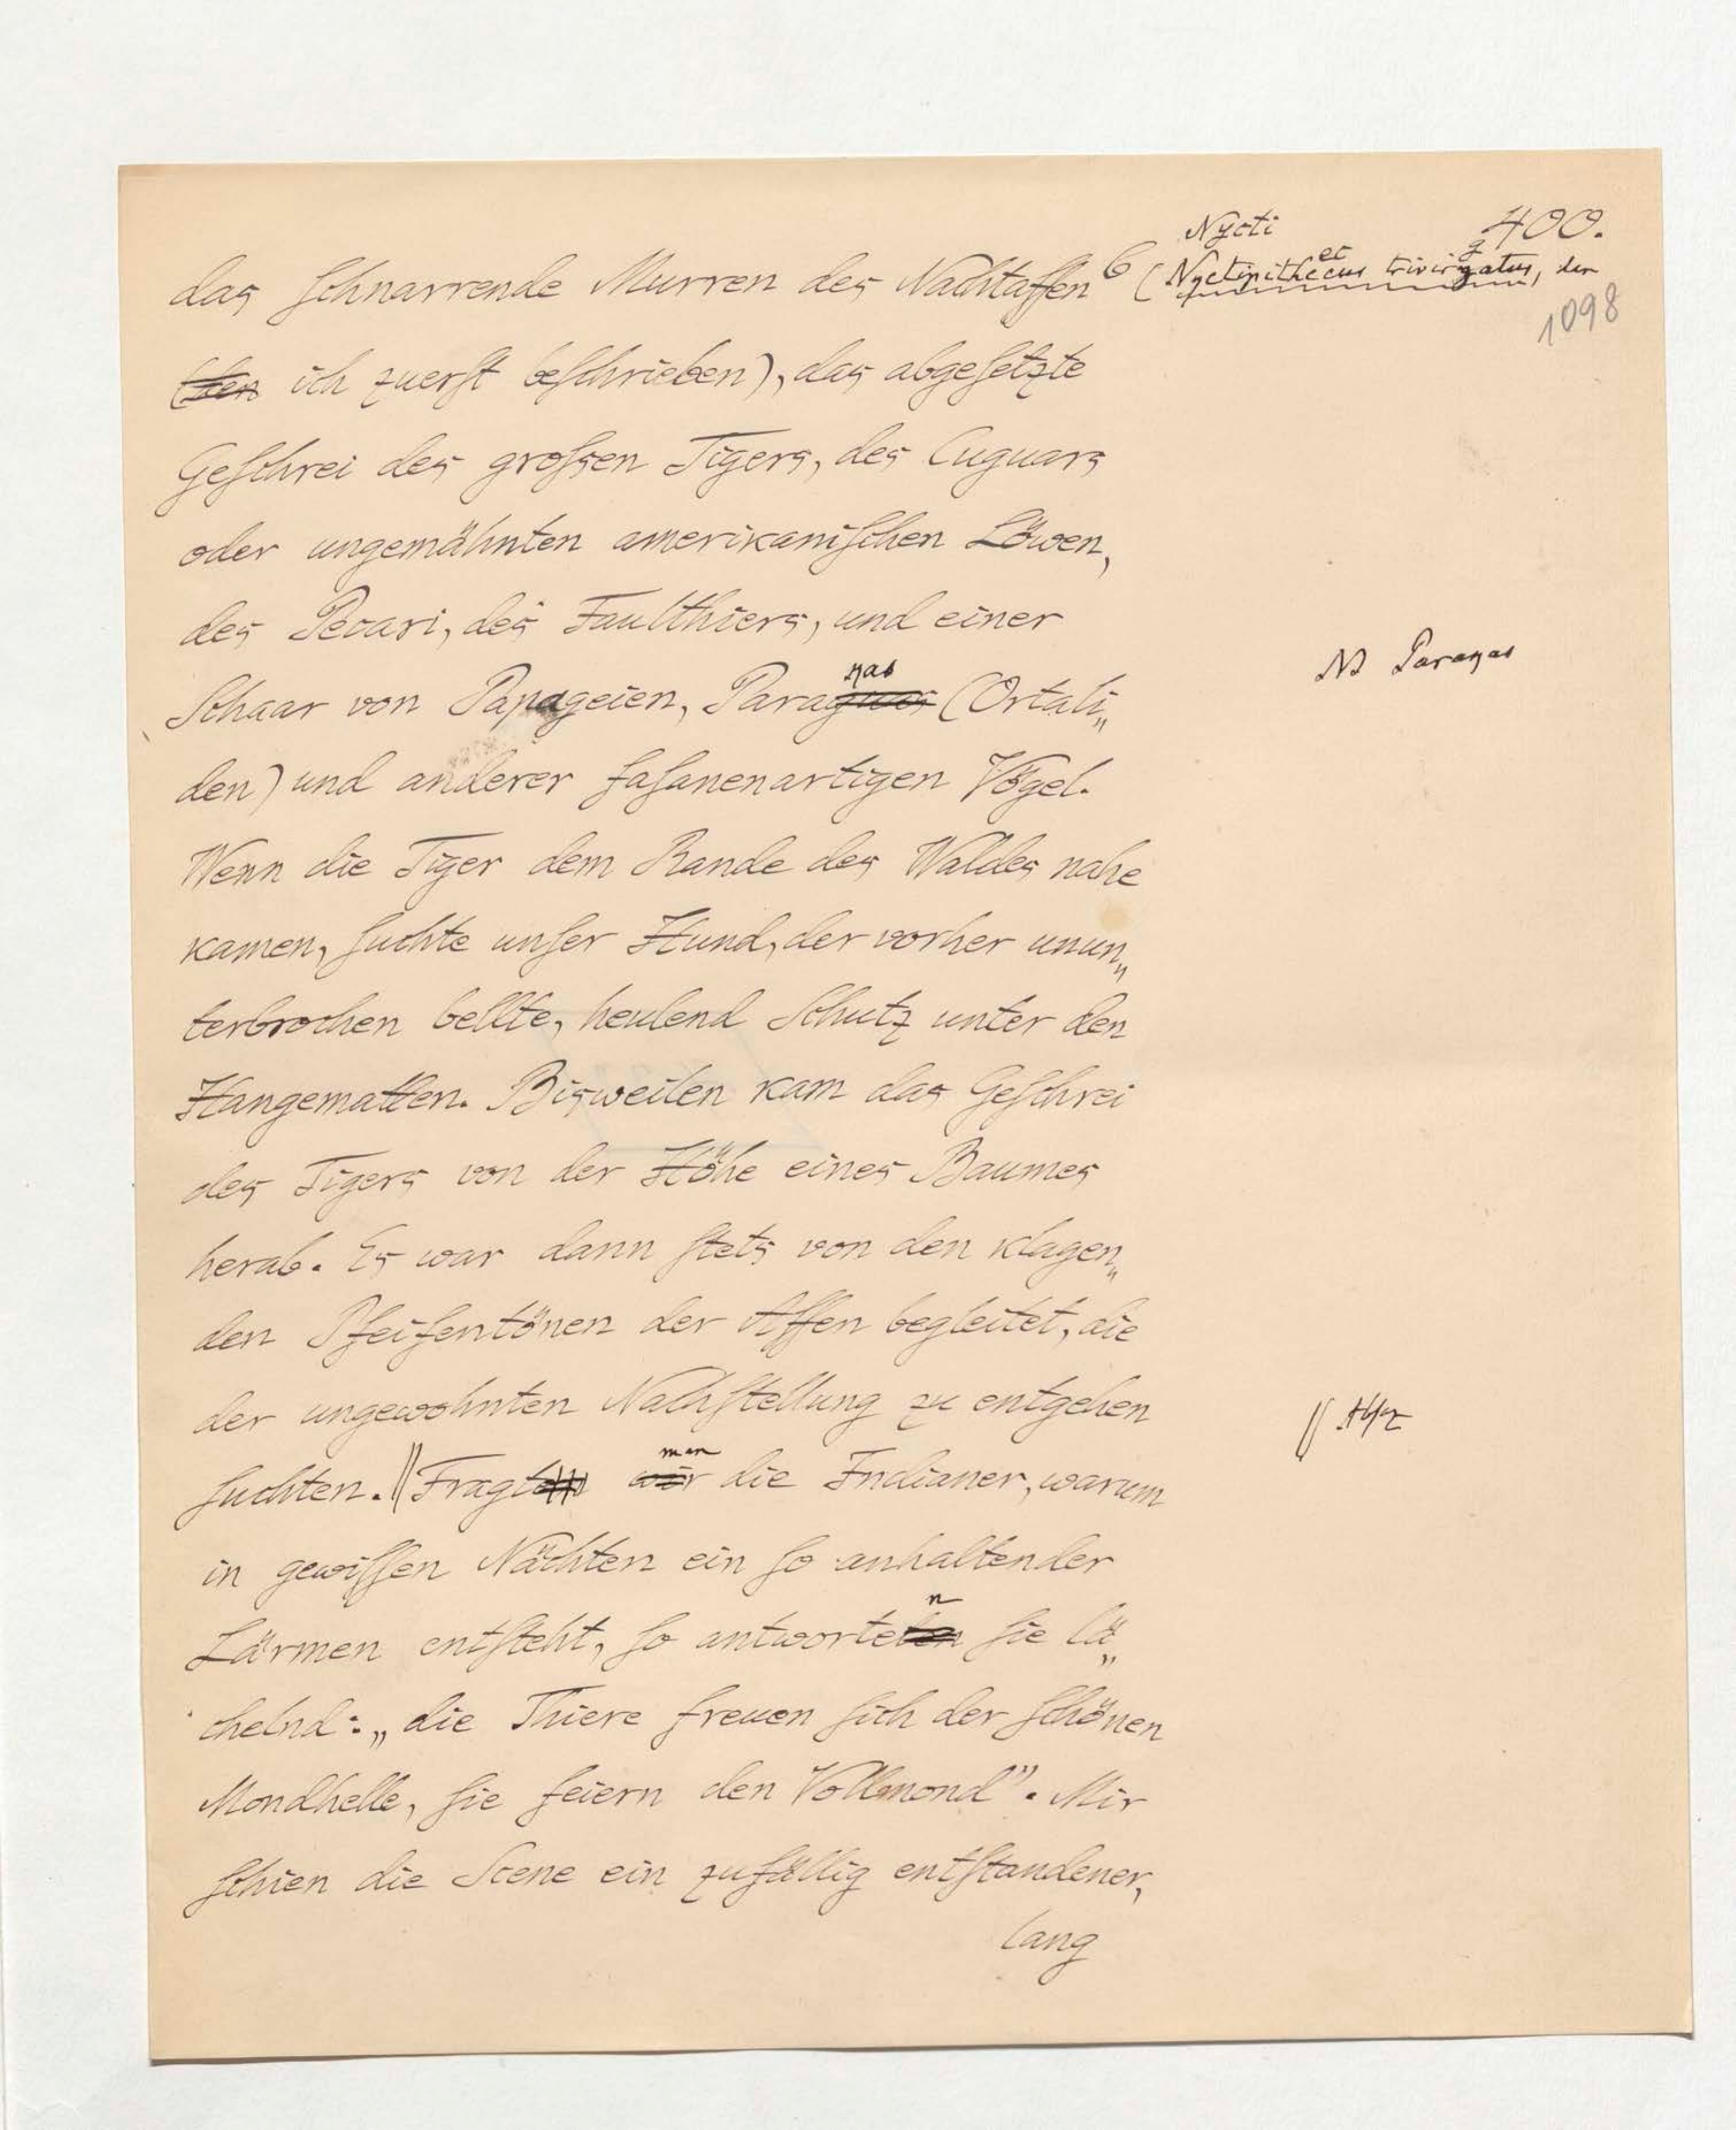 Nycti
400.
das schnarrende Murren des Nachtaffen 6 (Nyctipithecus trivirgatus, den
1098
(den ich zuerst beschrieben), das abgesetzte
Geschrei des grossen Tigers, des Cuguars
oder ungemähnten amerikanischen Löwen,
des Pecari, des Faulthiers, und einer
NB Paraqas
quas
Schaar von Papageien, Paraguas (Ortali„
den) und anderer fasanenartigen Vögel.
Wenn die Tiger dem Rande des Waldes nahe
kamen, suchte unser Hund, der vorher unun„
terbrochen bellte, heulend Schutz unter den
Hangematten. Bisweilen kam das Geschrei
des Tigers von der Höhe eines Baumes
herab. Es war dann stets von den klagen„
den Pfeifentönen der Affen begleitet, die
der ungewohnten Nachstellung zu entgehen
man
suchten. || Fragten wir die Indianer, warum
in gewissen Nächten ein so anhaltender
n
Lärmen entsteht, so antworteten sie lä„
chelnd: „die Thiere freuen sich der schönen
Mondhelle, sie feiern den Vollmond". Mir
schien die Scene ein zufällig entstandener,
lang